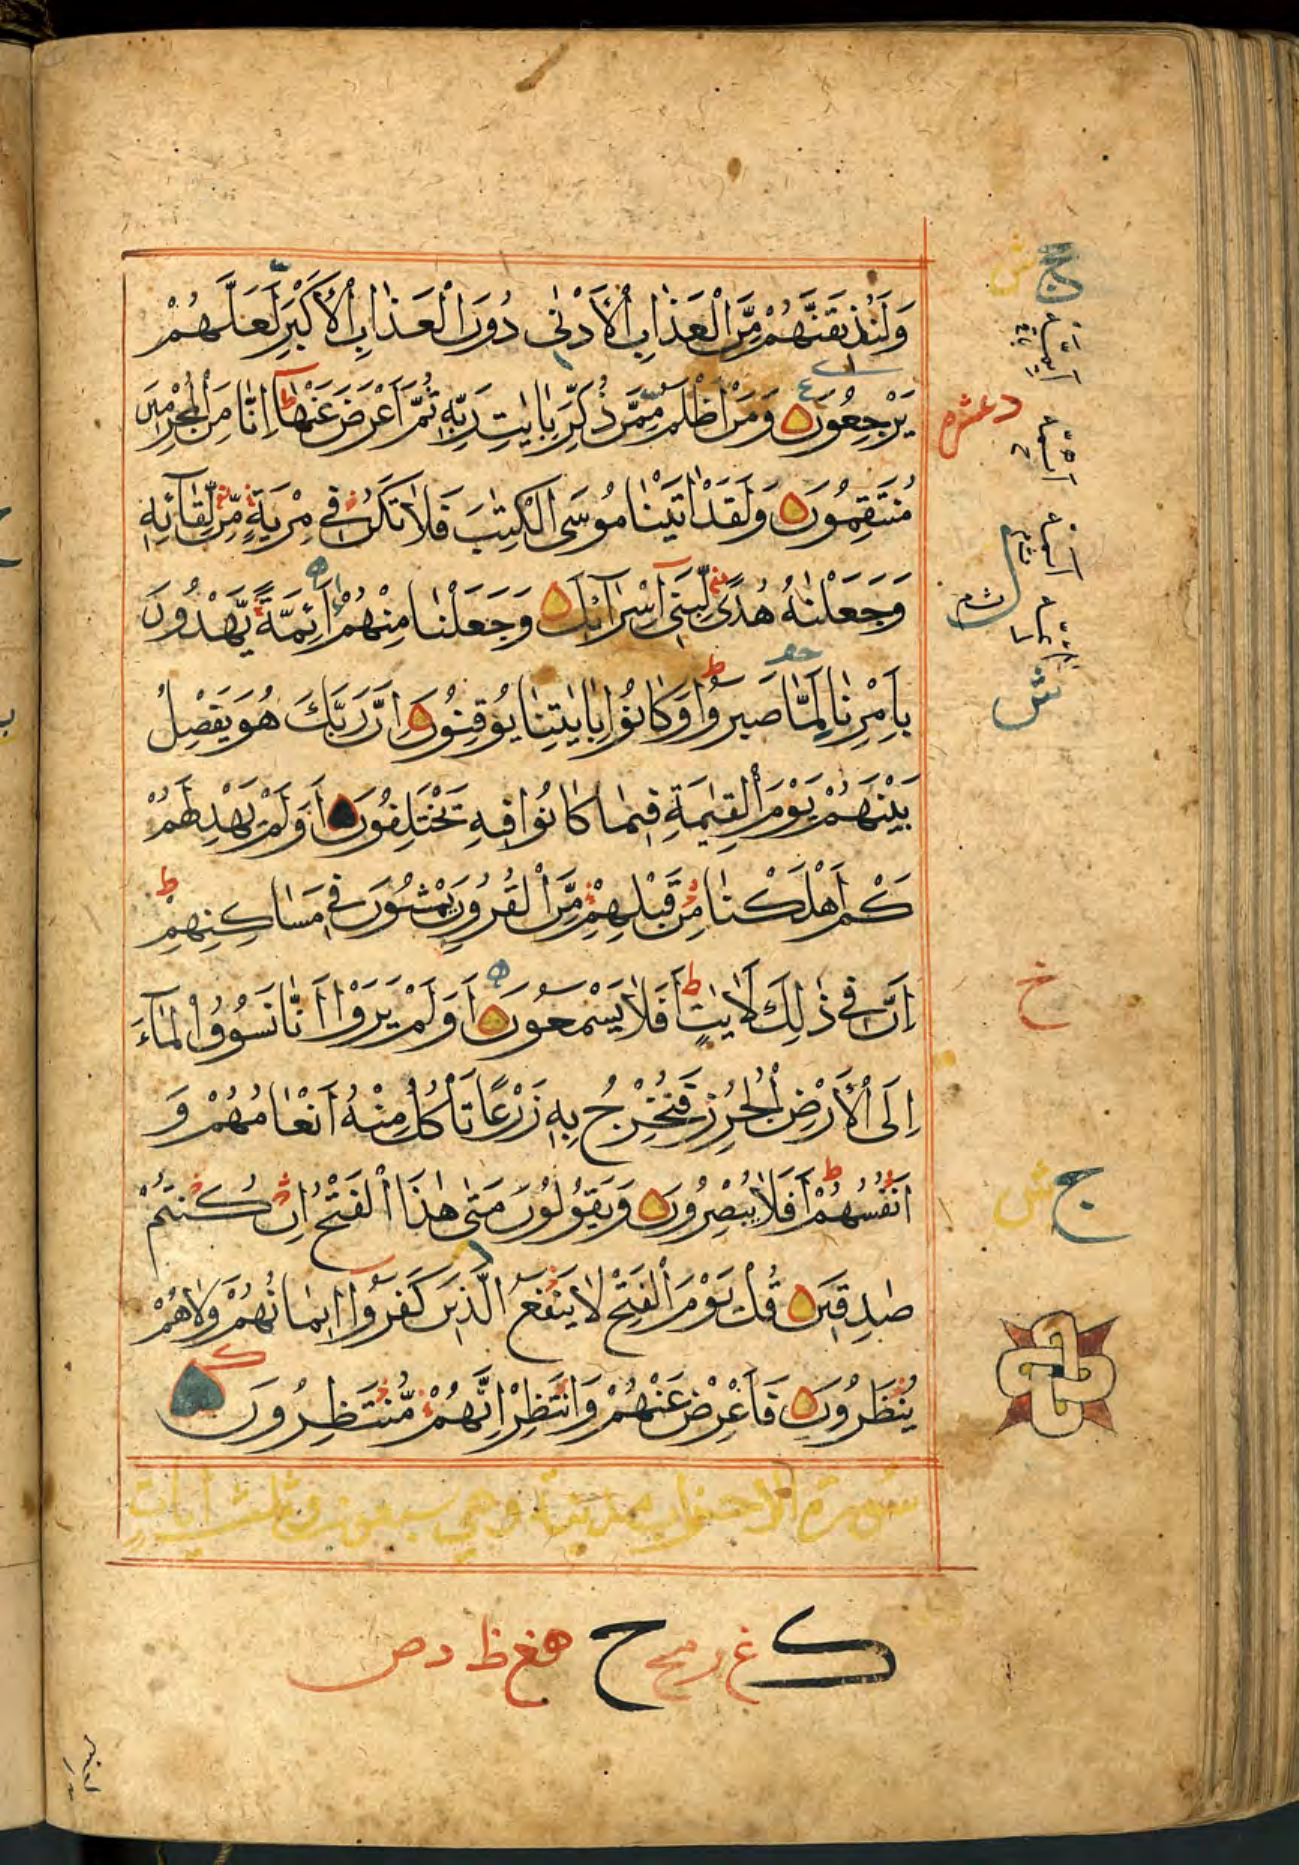 وَلَنُذِيقَنَّهُمْ مِّنَ الْعَذَابِ الْأَدْنٰى دُونَ الْعَذَابِ الْأَكْبَرِ لَعَلَّهُمْ
يَرْجِعُونَ وَمَنْ اَظْلَمُ مِمَّنْ ذُكِّرَ بِاٰيٰتِ رَبِّهٖ ثُمَّ اَعْرَضَ عَنْهَا ط اِنَّا مِنَ الْمُجْرِمِينَ
مُنْتَقِمُونَ وَلَقَدْ اٰتَيْنَا مُوسَى الْكِتٰبَ فَلَا تَكُنْ فِي مِرْيَةٍ مِّنْ لِّقَآئِهٖ
وَجَعَلْنٰهُ هُدًى لِّبَنِيٓ اِسْرَآئِيلَ وَجَعَلْنَا مِنْهُمْ اَئِمَّةً يَّهْدُونَ
بِاَمْرِنَا لَمَّا صَبَرُوا ط وَكَانُوا بِاٰيٰتِنَا يُوقِنُونَ اِنَّ رَبَّكَ هُوَ يَفْصِلُ
بَيْنَهُمْ يَوْمَ الْقِيٰمَةِ فِيمَا كَانُوا فِيهِ يَخْتَلِفُونَ اَوَلَمْ يَهْدِ لَهُمْ
كَمْ اَهْلَكْنَا مِنْ قَبْلِهِمْ مِّنَ الْقُرُونِ يَمْشُونَ فِي مَسَاكِنِهِمْ ط
اِنَّ فِي ذٰلِكَ لَاٰيٰتٍ ط اَفَلَا يَسْمَعُونَ اَوَلَمْ يَرَوْا اَنَّا نَسُوقُ الْمَآءَ
اِلَى الْأَرْضِ الْجُرُزِ فَنُخْرِجُ بِهٖ زَرْعًا تَأْكُلُ مِنْهُ اَنْعَامُهُمْ وَ
اَنْفُسُهُمْ ط اَفَلَا يُبْصِرُونَ وَيَقُولُونَ مَتٰى هٰذَا الْفَتْحُ اِنْ كُنْتُمْ
صٰدِقِينَ قُلْ يَوْمَ الْفَتْحِ لَا يَنْفَعُ الَّذِينَ كَفَرُوٓا اِيمَانُهُمْ وَلَا هُمْ
يُنْظَرُونَ فَاَعْرِضْ عَنْهُمْ وَانْتَظِرْ اِنَّهُمْ مُّنْتَظِرُونَ
سورة الاحزاب مدنية وهي سبعون وثلث ايات
ج ش
خ
ج ش
ك غ ح